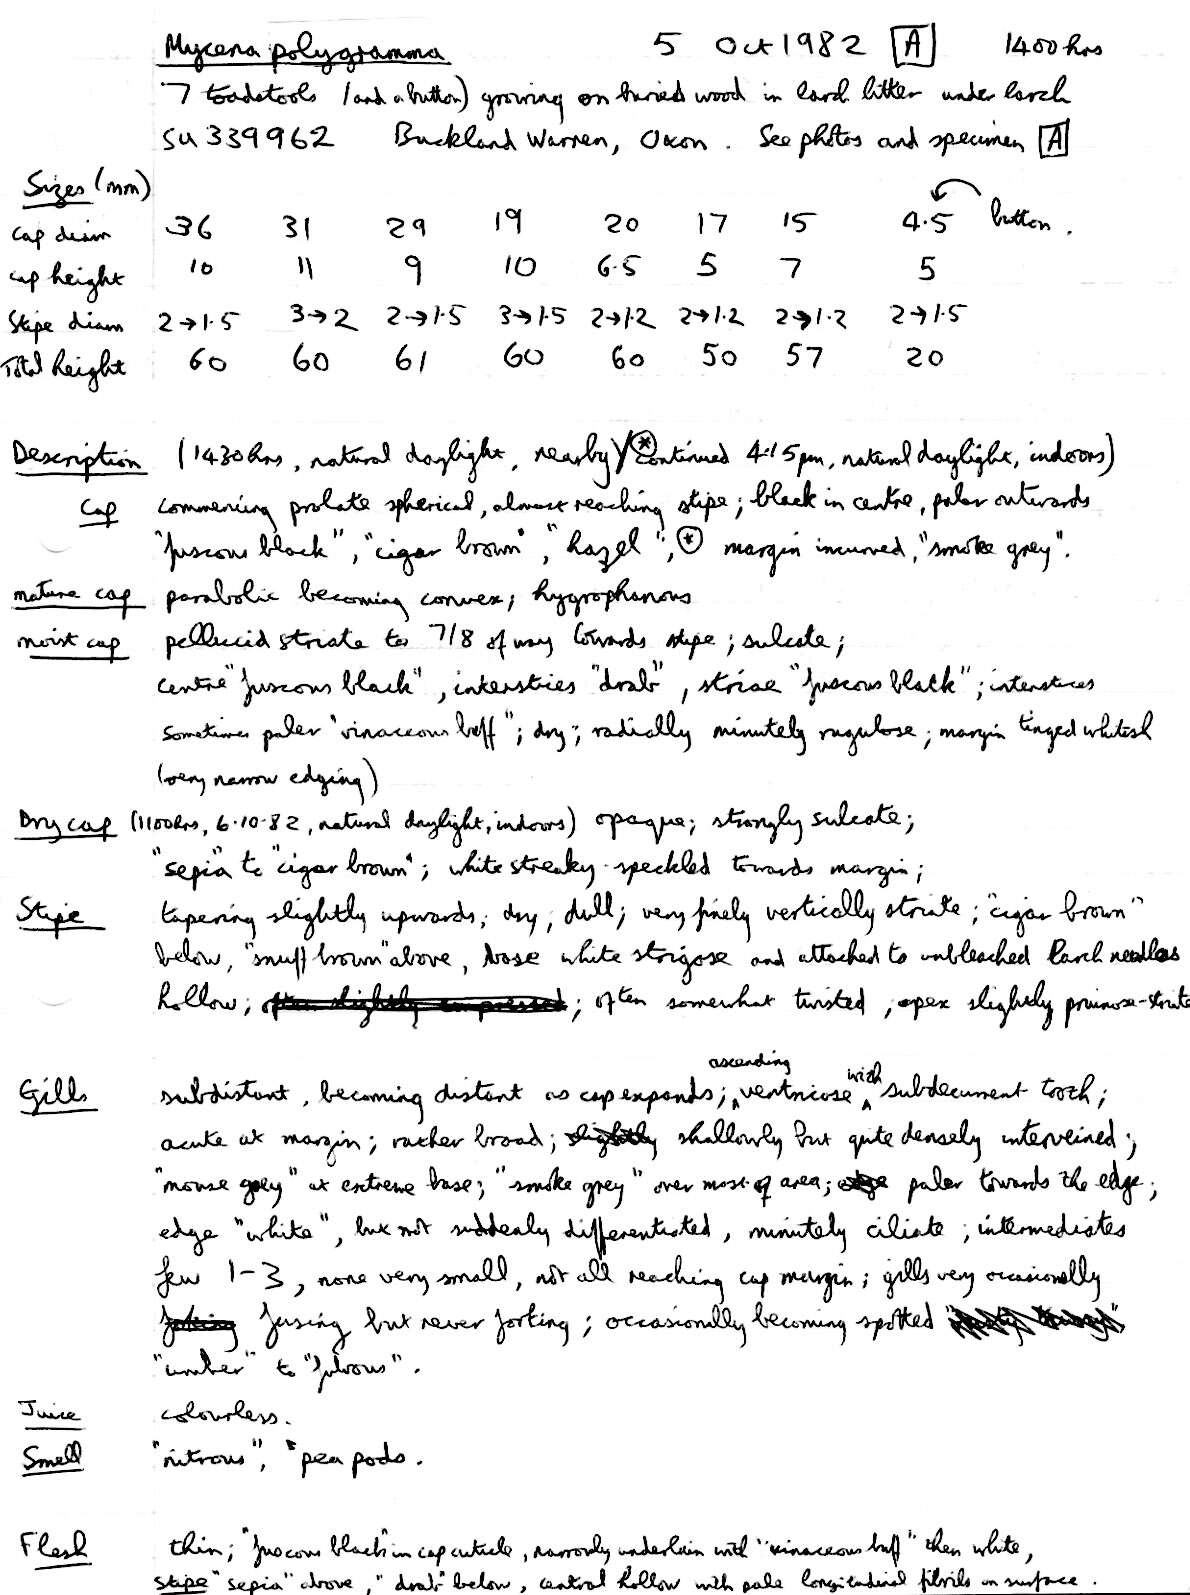 Mycena polygramma 5 Oct 1982 [A] 1400 hrs
7 toadstools (and a button) growing on buried wood in larch litter under larch
SU 339962 Buckland Warren, Oxon. See photos and specimen [A]
Sizes (mm)
cap diam 36 31 29 19 20 17 15 4.5 button.
cap height 10 11 9 10 6.5 5 7 5
Stipe diam 2→1.5 3→2 2→1.5 3→1.5 2→1.2 2→1.2 2→1.2 2→1.5
Total height 60 60 61 60 60 50 57 20
Description (1430 hrs, natural daylight, nearby)/(* continued 4.15pm, natural daylight, indoors)
Cap commencing prolate spherical, almost reaching stipe; black in centre, paler outwards
"fuscous black", "cigar brown", "hazel", (*) margin incurved, "smoke grey".
mature cap parabolic becoming convex; hygrophanous
moist cap pellucid striate to 7/8 of way towards stipe; sulcate;
centre "fuscous black", interstices "drab", striae "fuscous black"; interstices
sometimes paler "vinaceous buff"; dry; radially minutely rugulose; margin tinged whitish
(very narrow edging)
Dry cap (1100hrs, 6.10.82, natural daylight, indoors) opaque; strongly sulcate;
"sepia" to "cigar brown"; white streaky-speckled towards margin;
Stipe tapering slightly upwards; dry; dull; very finely vertically striate; "cigar brown"
below, "snuff brown" above, base white strigose and attached to unbleached larch needles
hollow; often slightly compressed; often somewhat twisted, apex slightly pruinose-striate
Gills subdistant, becoming distant as cap expands; ascending ventricose with subdecurrent tooth;
acute at margin; rather broad; slightly shallowly but quite densely interveined;
"mouse grey" at extreme base; "smoke grey" over most of area; edge paler towards the edge;
edge "white", but not suddenly differentiated, minutely ciliate; intermediates
few 1-3, none very small, not all reaching cap margin; gills very occasionally
forking fusing but never forking; occasionally becoming spotted
"umber" to "fulvous".
Juice colourless.
Smell "nitrous", "pea pods.
Flesh thin; "fuscous black" in cap cuticle, narrowly underlain with "vinaceous buff" then white,
stipe "sepia" above, "drab" below, central hollow with pale longitudinal fibrils on surface.